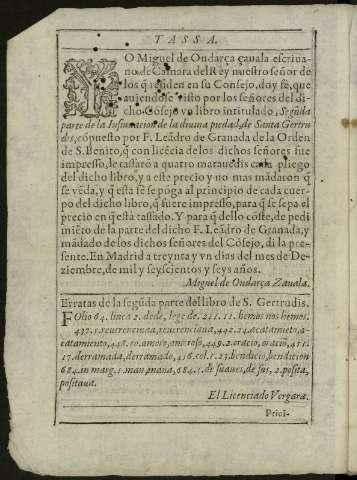 TASSA.
YO Miguel de Ondarça çauala escriua-
no de Camara del Rey nuestro señor de
los q̃ residen en su Consejo, doy fè, que
auiendose visto por los señores del di-
cho Cõsejo vn libro intitulado, Segũda
parte de la Insinuacion de la diuina piedad, de Santa Gertru
dis, cõpuesto por F. Leãdro de Granada de la Orden
de S. Benito, q̃ con licẽcia de los dichos señores fue
impresso, le tassarõ a quatro marauedis cada pliego
del dicho libro, y a este precio y no mas mãdaron q̃
se vẽda, y q̃ esta fè se põga al principio de cada cuer-
po del dicho libro, q̃ fuere impresso, para q̃ se sepa el
precio en q̃ està tassado. Y para q̃ dello cõste, de pedi
miẽto de la parte del dicho F. Leãdro de Granada, y
mãdado de los dichos señores del Cõsejo, di la pre-
sente. En Madrid a treynta y vn dias del mes de De-
ziembre, de mil y seyscientos y seys años.
Miguel de Ondarça Zauala.
Erratas de la segũda parte del libro de S. Gertrudis.
Folio 64. linea 2. dede, lege de. 211. 11. hemos nos hemos.
437. 1. reuerenciaa, reuerenciaua, 442. 14. acatamẽto, a-
catamiento, 448. 10. amoro, amoroso, 449. 2. oracio, oraciõ, 451.
17. derramada, derramado, 456. col. 1. 23. bendicio, bendicion
684. in marg. 1. man, mana, 684. 1. de suaues, de sus, 2. posita,
positaua.
El Licenciado Vergara.
Prici-